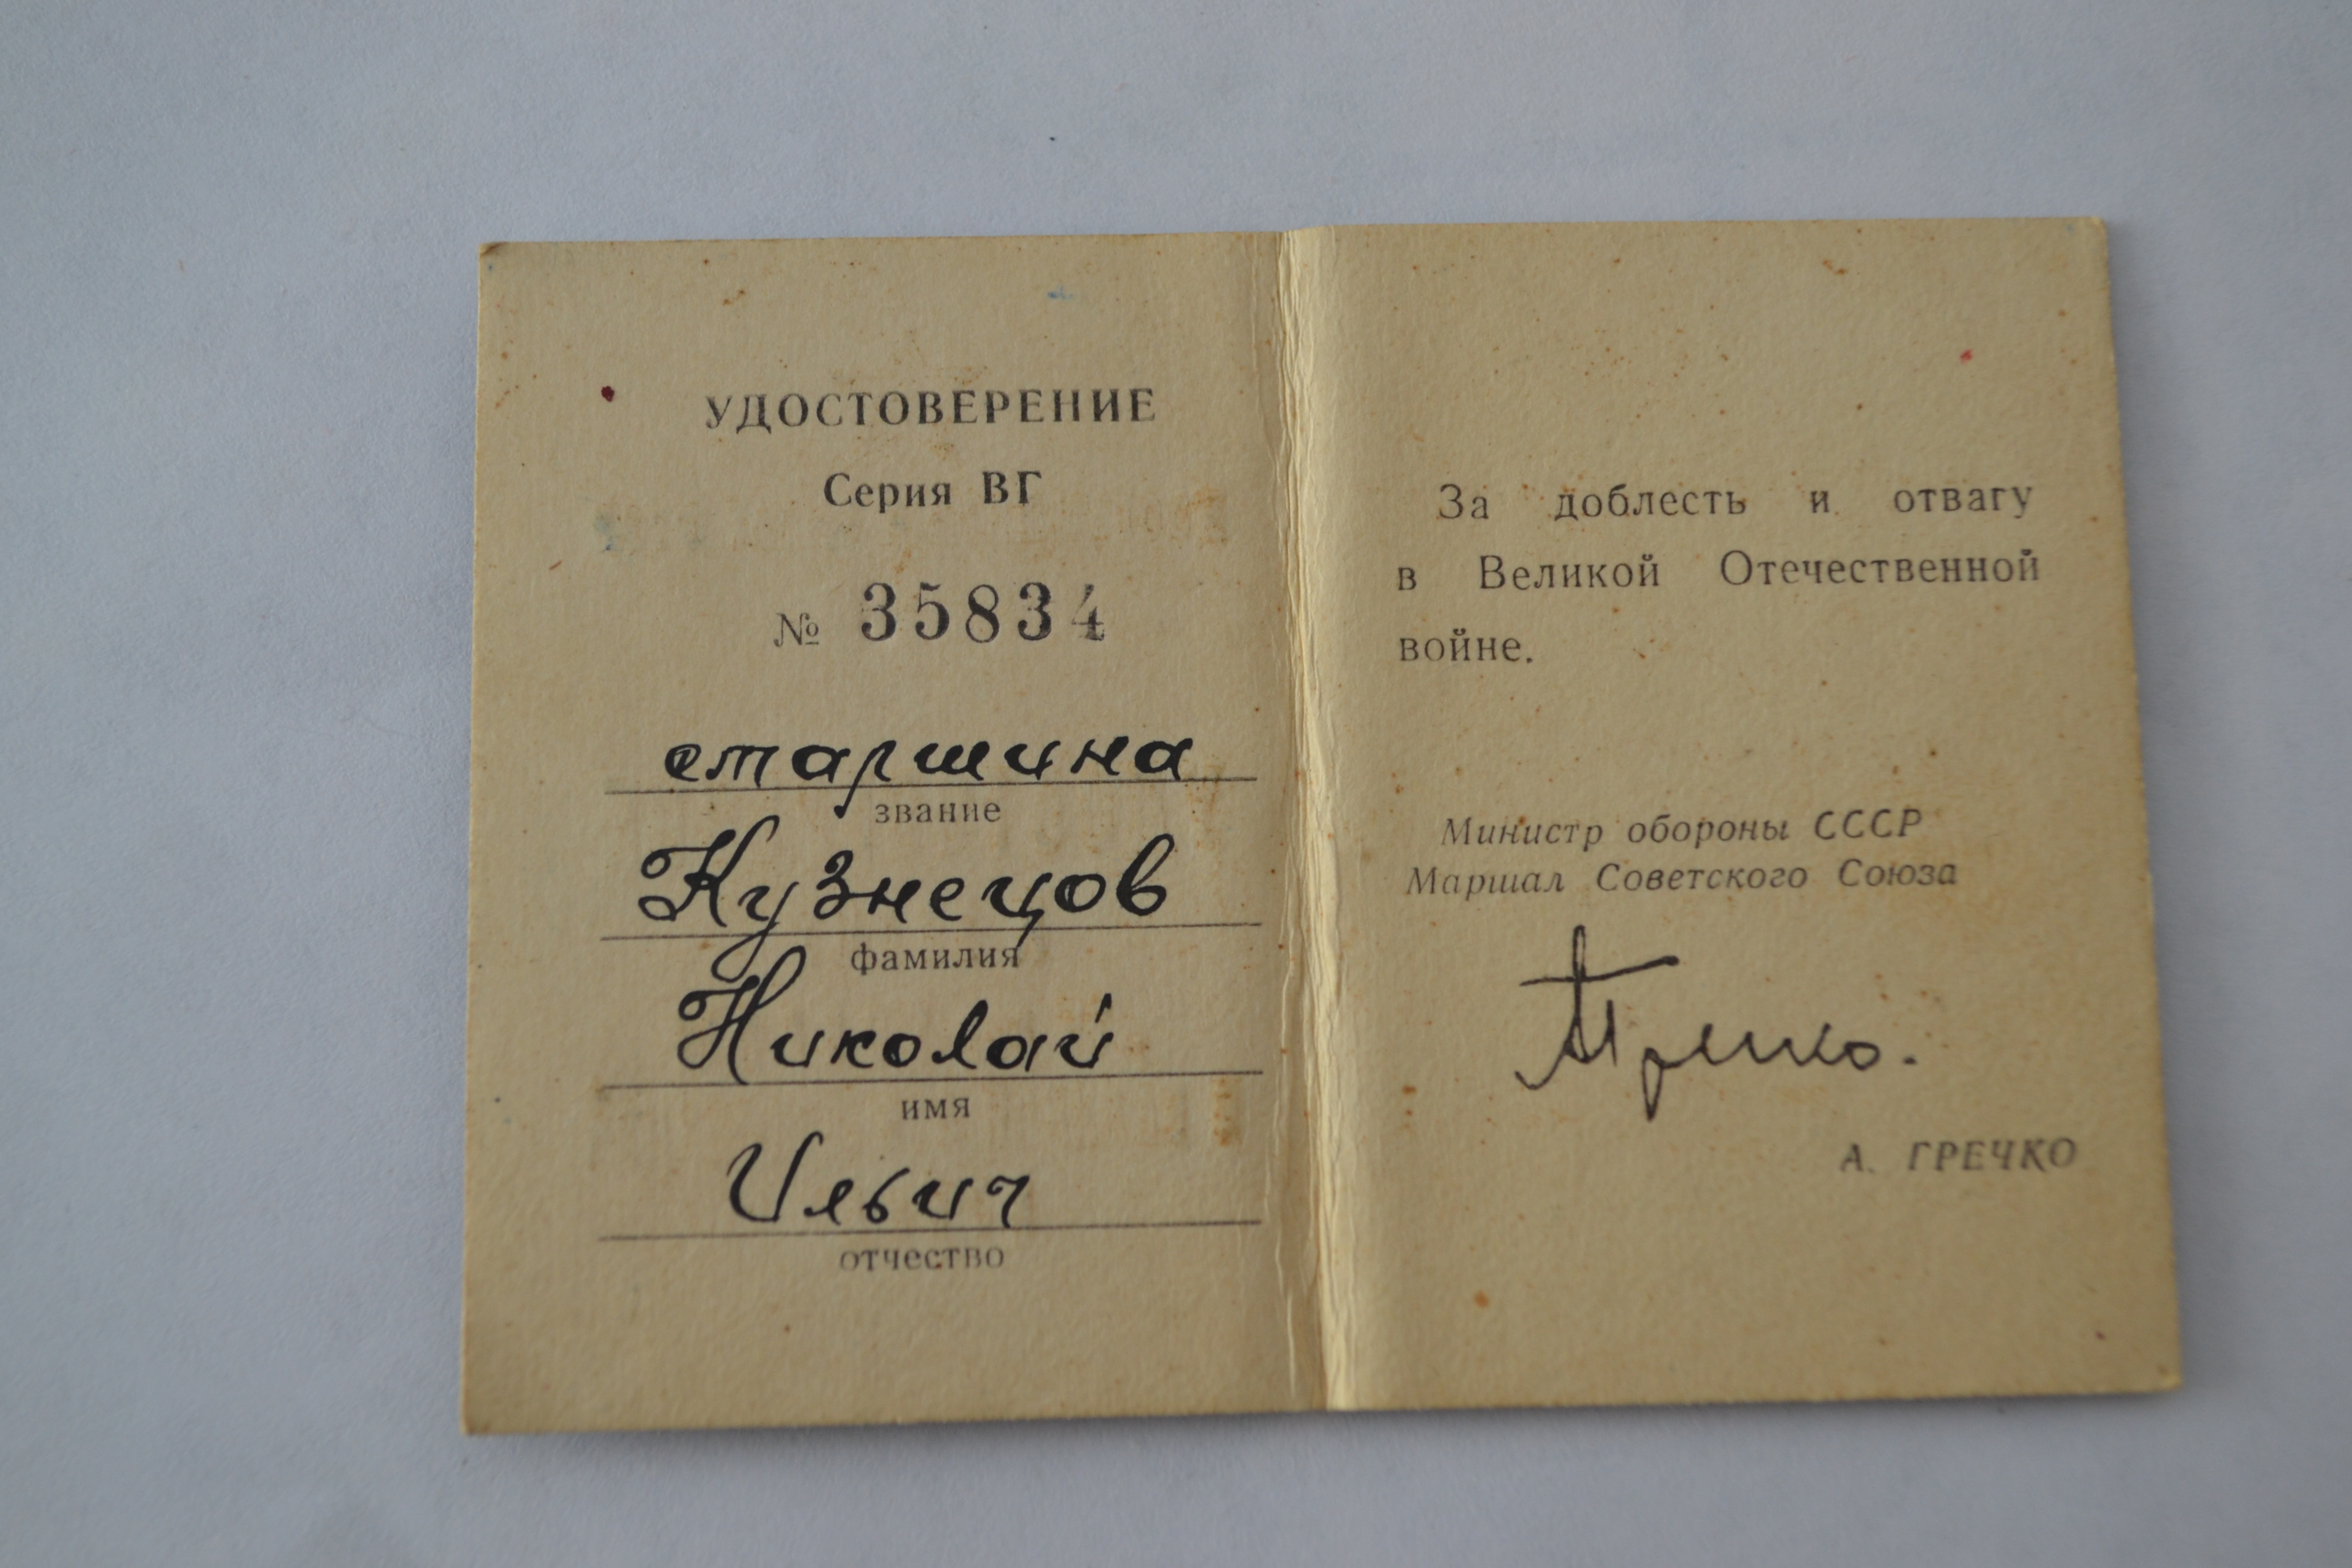 УДОСТОВЕРЕНИЕ
Серия ВГ
№ 35834
старшина
звание
Кузнецов
фамилия
Николай
имя
Ильич
отчество
За доблесть и отвагу
в Великой Отечественной
войне.
Министр обороны СССР
Маршал Советского Союза
АГречко.
А. ГРЕЧКО